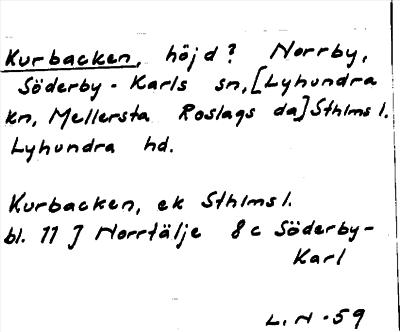 Kurbacken, höjd? Norrby,
Söderby-Karls sn, [Lyhundra
kn, Mellersta Roslags da] Sthlms l.
Lyhundra hd.
Kurbacken, ek Sthlms l.
bl. 11 J Norrtälje 8c Söderby-
Karl
L. N -59